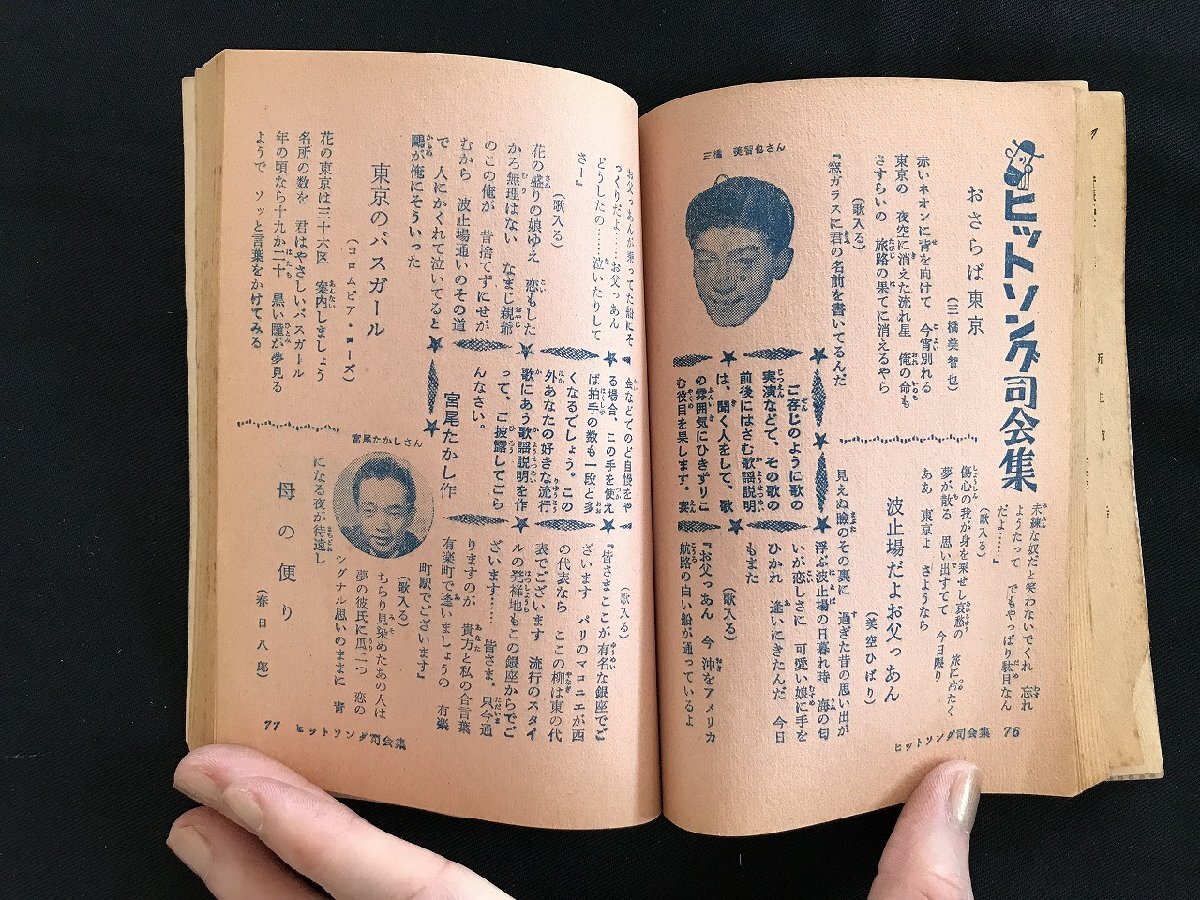 ヒットソング司会集
おさらば東京
(三橋美智也)
赤いネオンに背を向けて 今宵別れる
東京の 夜空に消えた流れ星 俺の命も
さすらいの 旅路の果てに消えるやら
(歌入る)
『窓ガラスに君の名前を書いてるんだ
三橋 美智也さん
未練な奴だと笑わないでくれ 忘れ
ようたって でもやっぱり駄目なん
だよ……』
(歌入る)
傷心の我が身を乗せし哀愁の 旅に冷たく
夢が散る 思い出すてて 今日限り
ああ 東京よ さようなら
波止場だよお父っあん
(美空ひばり)
見えぬ瞼のその裏に 過ぎた昔の思い出が
浮ぶ波止場の日暮れ時 海の匂
いが恋しさに 可愛い娘に手を
ひかれ 逢いにきたんだ 今日
もまた
(歌入る)
『お父っあん 今 沖をアメリカ
航路の白い船が通っているよ
ご存じのように歌の
実演などで、その歌の
前後にはさむ歌謡説明
は、聞く人をして、歌
の雰囲気にひきずりこ
む役目を果します。宴
ヒットソング司会集 76
お父っあんが乗ってた船にそ
っくりだよ……お父っあん
どうしたの……泣いたりして
さー』
(歌入る)
花の盛りの娘ゆえ 恋もした
かろ無理はない なまじ親爺
のこの俺が 昔捨てずにせが
むから 波止場通いのその道
で 人にかくれて泣いてると
鷗が俺にそういった
東京のバスガール
(コロムビア・ローズ)
花の東京は三十六区 案内しましょう
名所の数を 君はやさしいバスガール
年の頃なら十九か二十 黒い瞳が夢見る
ようで ソッと言葉をかけてみる
会などでのど自慢をや
る場合、この手を使え
ば拍手の数も一段と多
くなるでしょう。この
外あなたの好きな流行
歌にあう歌謡説明を作
って、ご披露してごら
んなさい。
宮尾たかし作
宮尾たかしさん
(歌入る)
『皆さまここが有名な銀座でご
ざいます パリのマロニエが西
の代表なら ここの柳は東の代
表でございます 流行のスタイ
ルの発祥地もこの銀座からでご
ざいます…… 皆さま。只今通
りますのが 貴方と私の合言葉
有楽町で逢いましょうの 有楽
町駅でございます』
(歌入る)
ちらり見染めたあの人は
夢の彼氏に瓜二つ 恋の
シグナル思いのままに 青
になる夜が待遠し
母の便り
(春日八郎)
77 ヒットソング司会集